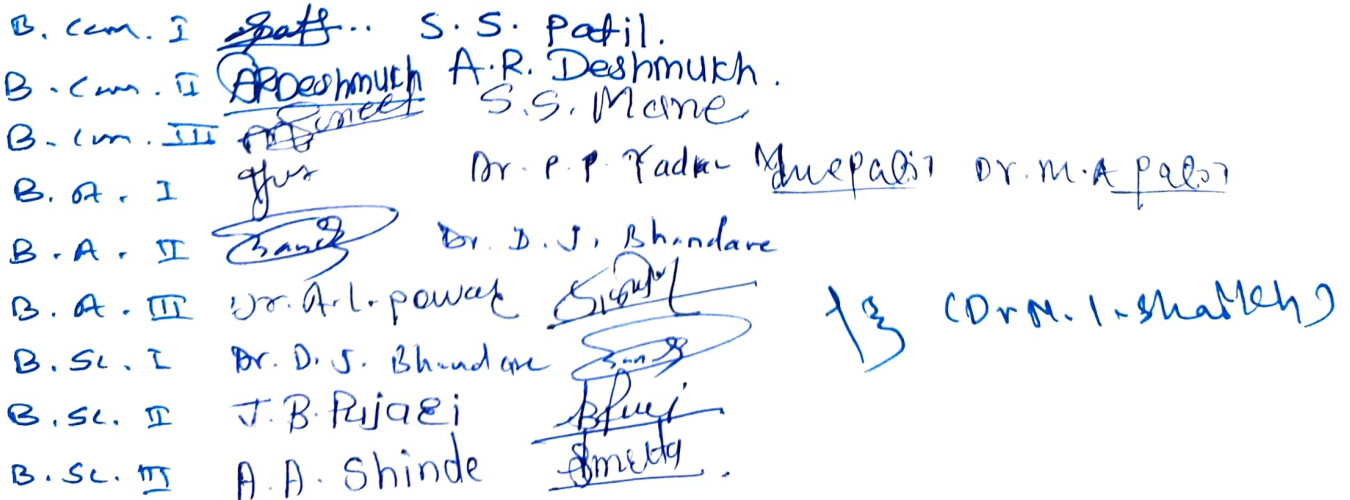 B. Com. I S. S. Patil.
B. Com. II ARDeshmukh A.R. Deshmukh.
B. Com. III S.S. Mane
B. A. I Dr. P. P. Yadav Dr. M. A Patil
B. A. II Dr. D. J. Bhandare
B. A. III Dr. A. L. powar (Dr M. I. Shaikh)
B. Sc. I Dr. D. J. Bhandare
B. Sc. II J. B. Pujari
B. Sc. III A. A. Shinde